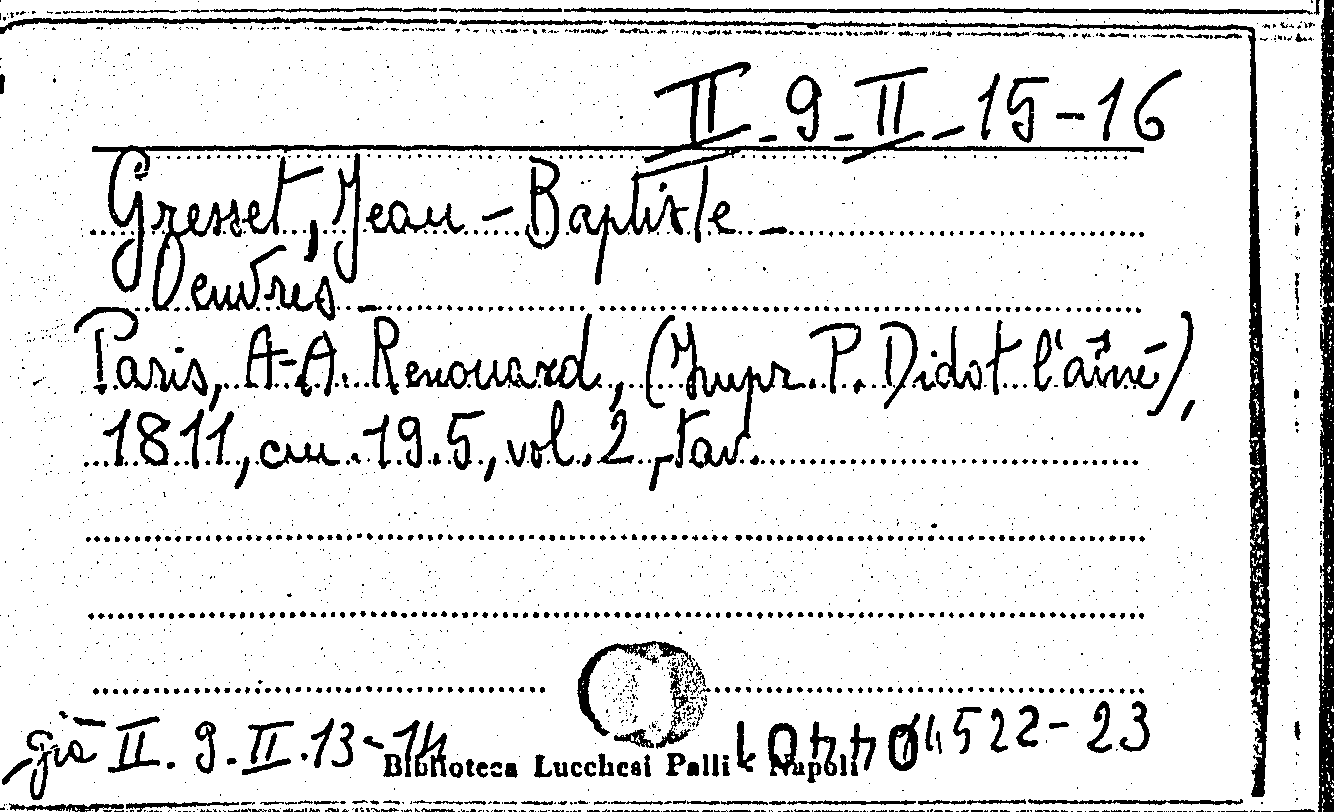 II-9-II-15-16
Gresset, Jean-Baptiste -
Oeuvres -
Paris, A-A. Renouard, (Impr. P. Didot l'aîné),
1811, cm. 19.5, vol. 2, tav.
già II. 9. II. 13-14
522-23
Biblioteca Lucchesi Palli - Napoli